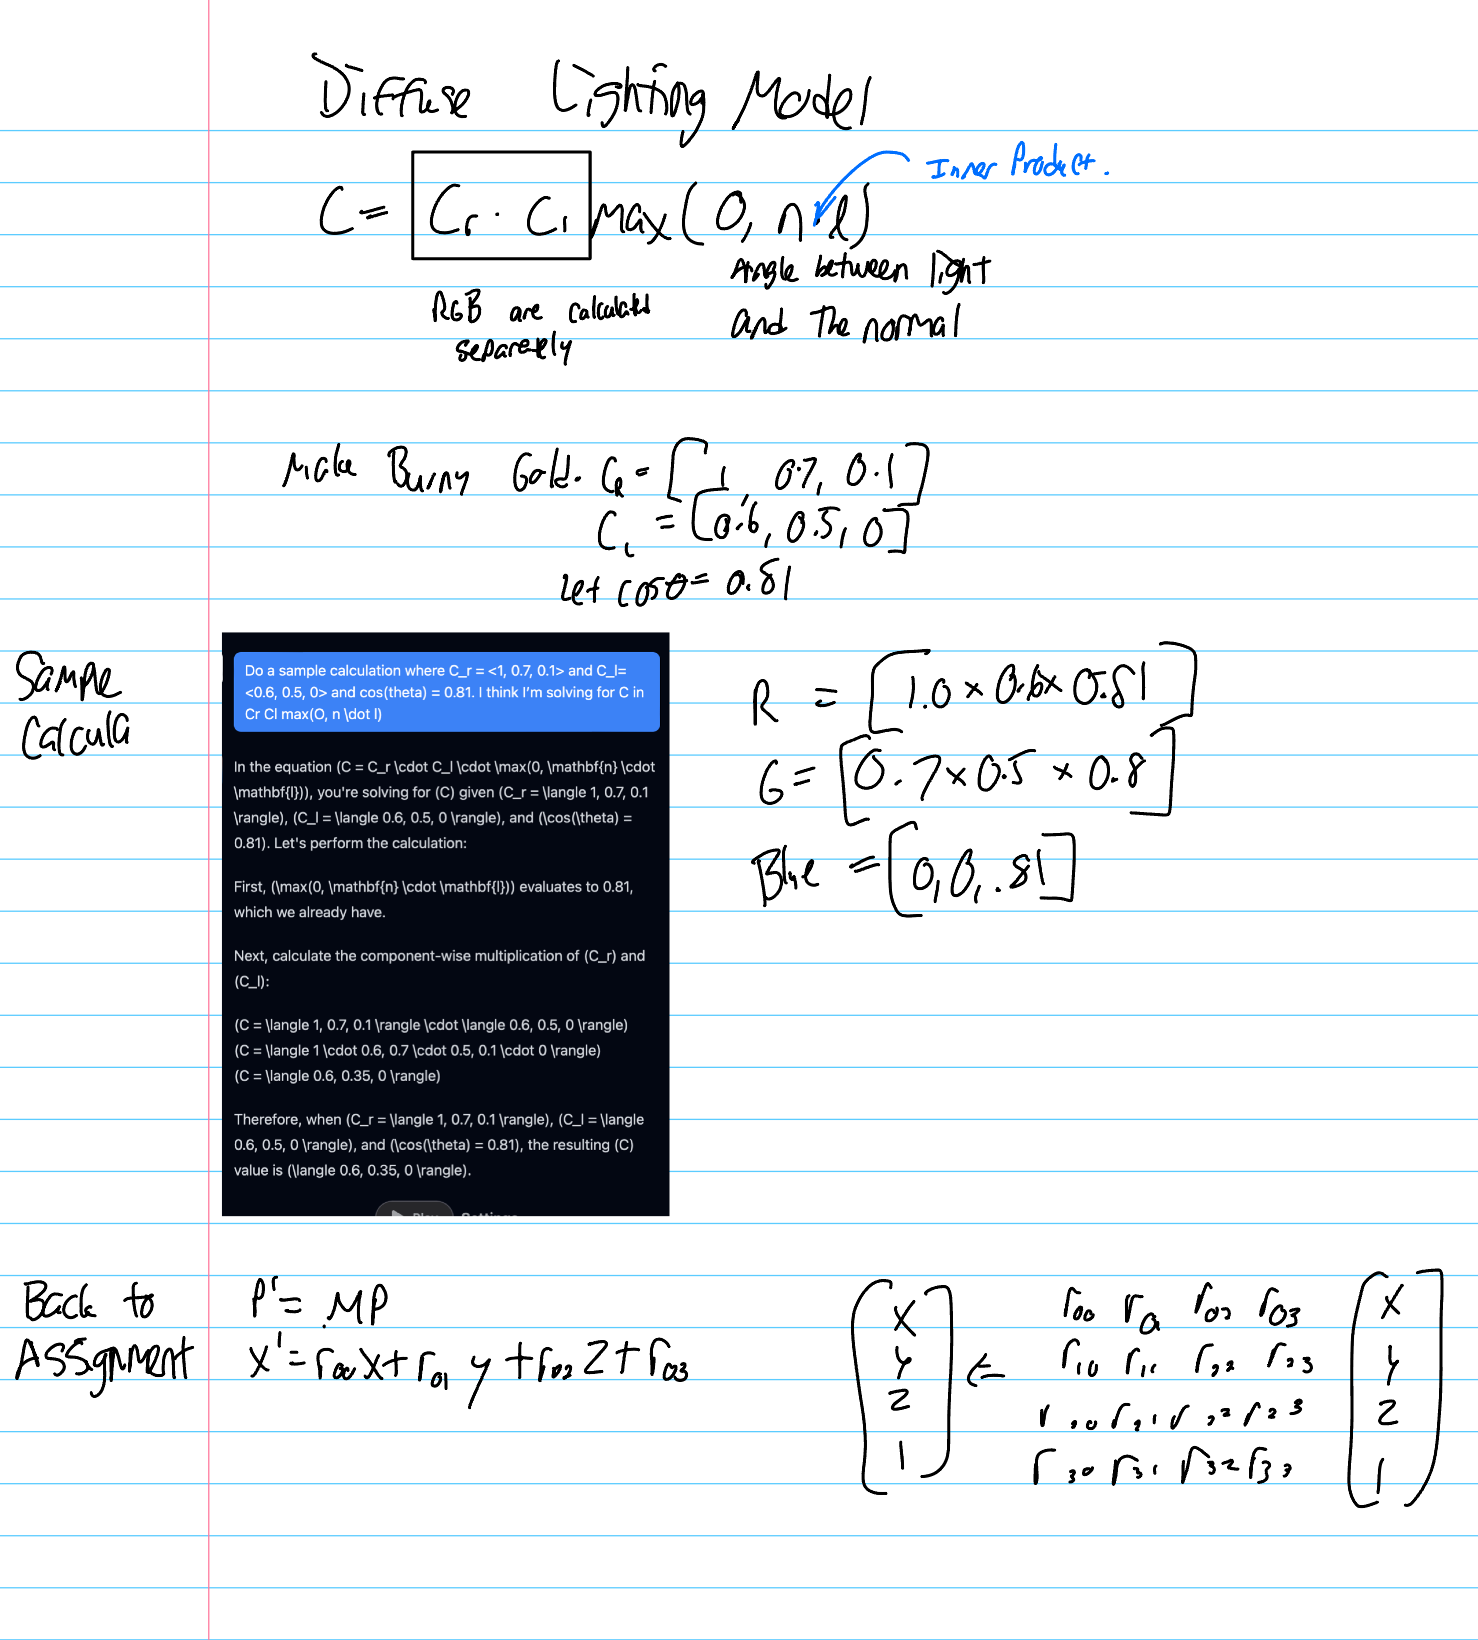 Diffuse Lighting Model
Inner Product.
C = Cr · Cl max(0, n·l)
Angle between light
and the normal
RGB are calculated
separately
Make Bunny Gold. CR = [1, 0.7, 0.1]
CL = [0.6, 0.5, 0]
Let cosθ = 0.81
Sample
Calcula
Do a sample calculation where C_r = <1, 0.7, 0.1> and C_l=
<0.6, 0.5, 0> and cos(theta) = 0.81. I think I'm solving for C in
Cr Cl max(O, n \dot l)
In the equation (C = C_r \cdot C_l \cdot \max(0, \mathbf{n} \cdot
\mathbf{l})), you're solving for (C) given (C_r = \langle 1, 0.7, 0.1
\rangle), (C_l = \langle 0.6, 0.5, 0 \rangle), and (\cos(\theta) =
0.81). Let's perform the calculation:
First, (\max(0, \mathbf{n} \cdot \mathbf{l})) evaluates to 0.81,
which we already have.
Next, calculate the component-wise multiplication of (C_r) and
(C_l):
(C = \langle 1, 0.7, 0.1 \rangle \cdot \langle 0.6, 0.5, 0 \rangle)
(C = \langle 1 \cdot 0.6, 0.7 \cdot 0.5, 0.1 \cdot 0 \rangle)
(C = \langle 0.6, 0.35, 0 \rangle)
Therefore, when (C_r = \langle 1, 0.7, 0.1 \rangle), (C_l = \langle
0.6, 0.5, 0 \rangle), and (\cos(\theta) = 0.81), the resulting (C)
value is (\langle 0.6, 0.35, 0 \rangle).
R = [1.0 × 0.6 × 0.81]
G = [0.7 × 0.5 × 0.8]
Blue = [0, 0, .81]
Back to
Assignment
P' = MP
x' = r00 x + r01 y + r02 z + r03
[x y z 1] ←
r00 r01 r02 r03
r10 r11 r22 r23
r20 r21 r22 r23
r30 r31 r32 r33
[x y z 1]